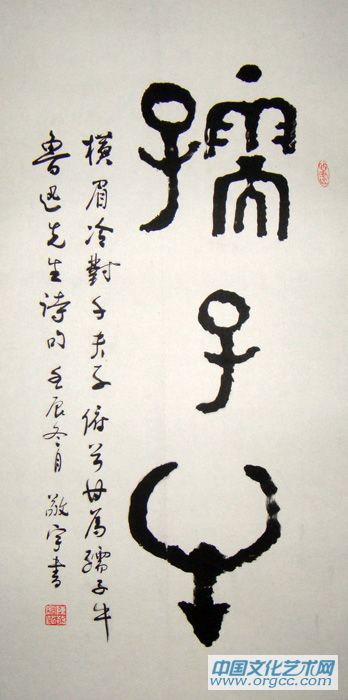 孺子牛
橫眉冷對千夫子俯首甘為孺子牛
魯迅先生詩句壬辰冬月 敬宇書
中国文化艺术网
www.orgcc.com